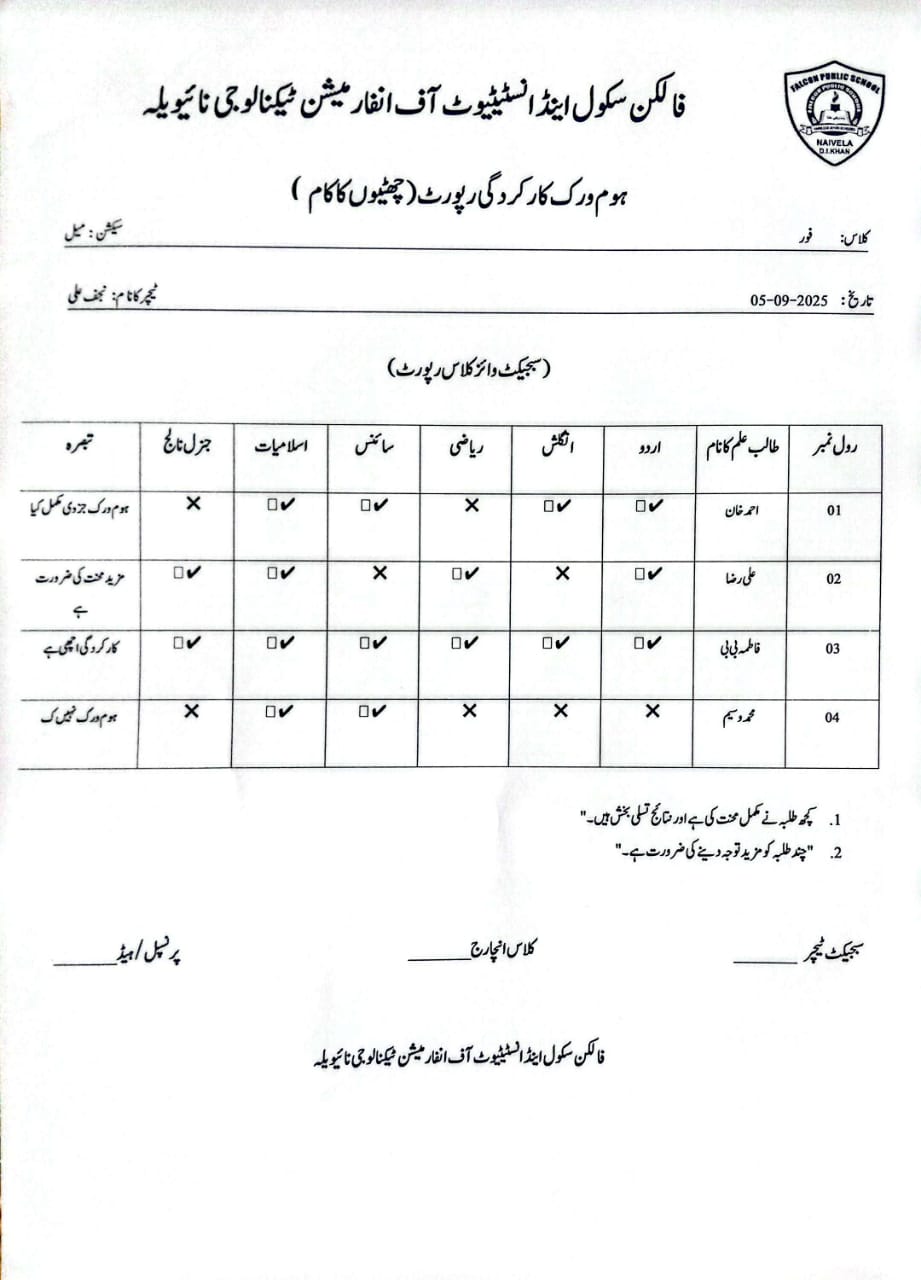 فالکن سکول اینڈ انسٹیٹیوٹ آف انفارمیشن ٹیکنالوجی نائیویلہ
FALCON PUBLIC SCHOOL
NAIVELA
D.I.KHAN
ہوم ورک کارکردگی رپورٹ (چھٹیوں کا کام )
کلاس: فور سیکشن: میل
تاریخ: 05-09-2025 ٹیچر کا نام: نجف علی
(سبجیکٹ وائز کلاس رپورٹ)
رول نمبر طالب علم کا نام اردو انگلش ریاضی سائنس اسلامیات جنرل نالج تبصرہ
01 احمد خان ✔□ ✔□ ✕ ✔□ ✔□ ✕ ہوم ورک جزدی مکمل کیا
02 علی رضا ✔□ ✕ ✔□ ✕ ✔□ ✔□ مزید محنت کی ضرورت
ہے
03 فاطمہ بی بی ✔□ ✔□ ✔□ ✔□ ✔□ ✔□ کارکردگی اچھی ہے
04 محمد وسیم ✕ ✕ ✕ ✔□ ✔□ ✕ ہوم ورک نہیں ک
1. کچھ طلبہ نے مکمل محنت کی ہے اور نتائج تسلی بخش ہیں۔"
2. "چند طلبہ کو مزید توجہ دینے کی ضرورت ہے۔"
سبجیکٹ ٹیچر ______ کلاس انچارج ______ پرنسپل/ہیڈ ______
فالکن سکول اینڈ انسٹیٹیوٹ آف انفارمیشن ٹیکنالوجی نائیویلہ